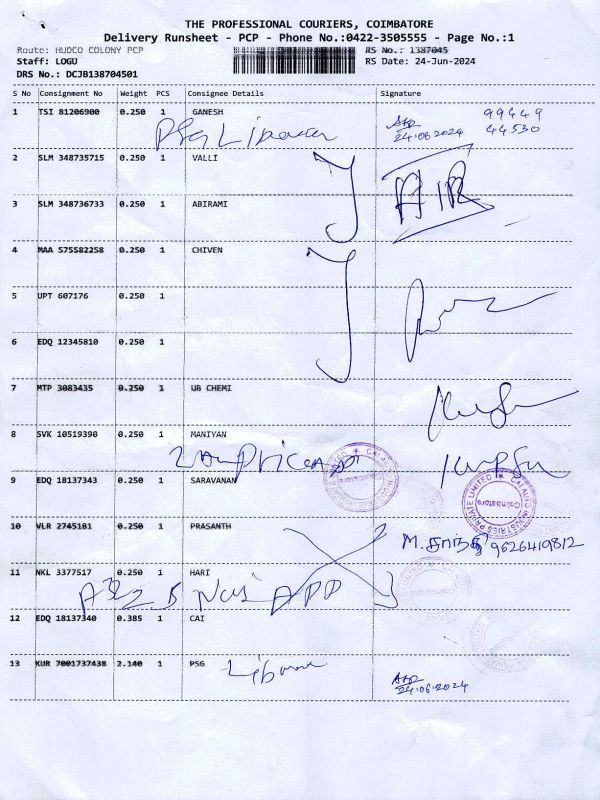 THE PROFESSIONAL COURIERS, COIMBATORE
Delivery Runsheet - PCP - Phone No.:0422-3505555 - Page No.:1
Route: HUDCO COLONY PCP RS No.: 1387045
Staff: LOGU RS Date: 24-Jun-2024
DRS No.: DCJB138704501
S No Consignment No Weight PCS Consignee Details Signature
1 TSI 81206900 0.250 1 GANESH 99449
PSG Library 24.06.2024 44530
2 SLM 348735715 0.250 1 VALLI
3 SLM 348736733 0.250 1 ABIRAMI
4 MAA 575582258 0.250 1 CHIVEN
5 UPT 607176 0.250 1
6 EDQ 12345810 0.250 1
7 MTP 3083435 0.250 1 UB CHEMI
8 SVK 10519390 0.250 1 MANIYAN
9 EDQ 18137343 0.250 1 SARAVANAN
CAI AUTO INDUSTRIES PRIVATE LIMITED
Coimbatore
10 VLR 2745181 0.250 1 PRASANTH
M. சாந்தி 9626419812
11 NKL 3377517 0.250 1 HARI
12 EDQ 18137340 0.385 1 CAI
13 KUR 7001737438 2.140 1 PSG Library
24.06.2024